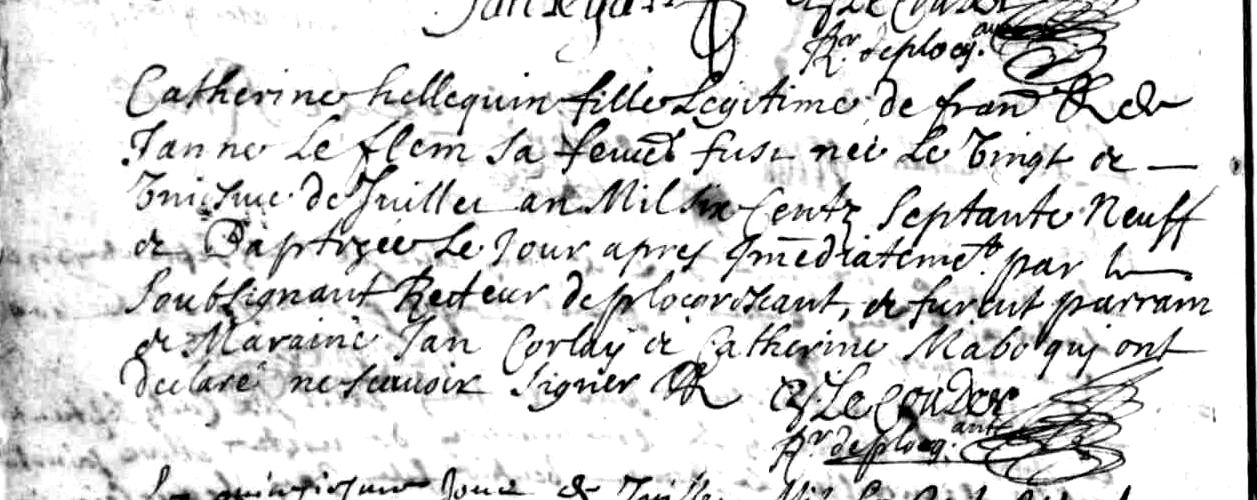 Rr. de ploeg. ant
Catherine hellequin fille Legitime de fran &
Janne Le flem sa femme fust neé Le Vingt et
Vniesme de Juillet an Mil six Centz Septante Neuff
et Baptizée Le Jour apres Jmediatemet. par le
soubsignant Recteur de plocorOscant, et furent parrain
et Maraine Jan Corlay et Catherine Mabo quj ont
declaré ne scauoir signer
Le couder
Rr de ploeg. ant
Jour de Juillet Mil